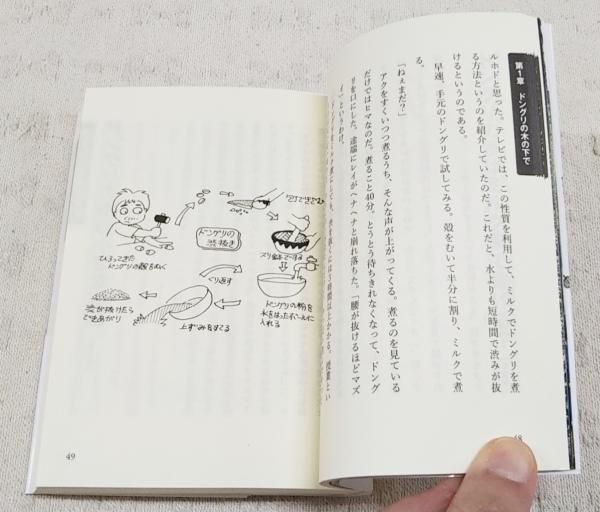 第1章 ドングリの木の下で
ルホドと思った。テレビでは、この性質を利用して、ミルクでドングリを煮
る方法というのを紹介していたのだ。これだと、水よりも短時間で渋みが抜
けるというのである。
早速、手元のドングリで試してみる。殻をむいて半分に割り、ミルクで煮
る。
「ねぇまだ?」
アクをすくいつつ煮るうち、そんな声が上がってくる。煮るのを見ている
だけではヒマなのだ。煮ること40分。とうとう待ちきれなくなって、ドング
リを口にした。途端にレイがヘナヘナと崩れ落ちた。「腰が抜けるほどマズ
イ」というわけ。
48
ドングリの
渋抜き
ひろってきた
ドングリの殻をむく
スリ鉢で
ドングリの粉を
水をはったボールに
入れる
上ずみをすてる
くり返す
渋が抜けたら
できあがり
49